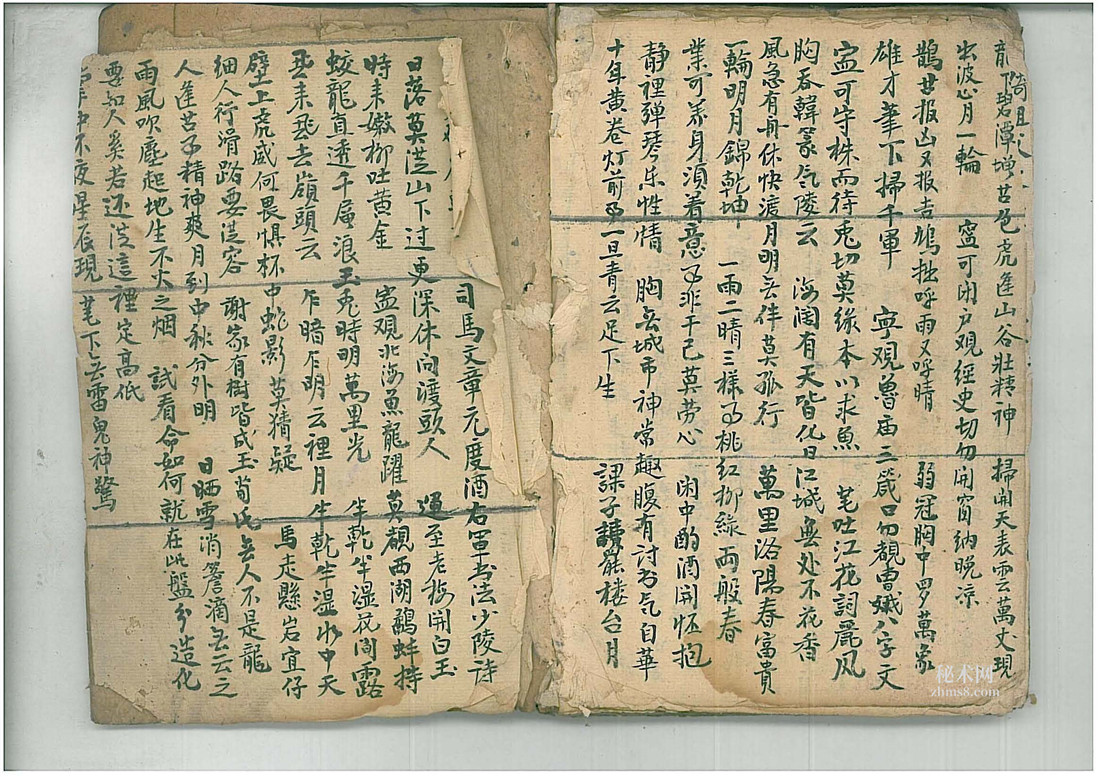 碧潭增苔色虎逢山谷壯精神 掃開天表雲萬丈現
出波心月一輪 寧可闭户观經史切勿開窗納晚凉
鵲廿报凶又报吉鳩拙呼雨又呼晴 弱冠胸中罗萬象
雄才筆下掃千軍 寍观魯庙三箴口勿覩曹娥八字文
寍可守株而待兎切莫缘木以求魚 笔吐江花詞麗风
胸吞韓篆气陵云 海阔有天皆化日江城無处不花香
風急有舟休快渡月明无伴莫孤行 萬里洛陽春富貴
一輪明月錦乾坤 一雨二晴三樣事桃红柳綠両般春
業可养身湏着意事非干己莫劳心 闲中酌酒開怀抱
静裡弹琴乐性情 胸无城市神常趣腹有討书气自華
十年黄卷灯前事一旦青云足下生 課子讀罷楼台月
司馬文章元度酒右軍书法少陵诗
日落莫從山下过更深休向渡頭人 運至老梅開白玉
時来嫩柳吐黄金 寍观北海魚龍躍莫覩西湖鷸蚌持
蛟龍直透千層浪玉兎時明萬里光 半乾半湿花间露
飛来飛去嶺頭云 乍暗乍明云裡月半乾半湿水中天
壁上虎威何畏惧杯中蛇影草猜疑 馬走懸岩宜仔
细人行滑路要從容 謝家有樹皆成玉荀氏无人不是龍
人逢苦事精神爽月到中秋分外明 日晒雪消簷滴无云之
雨風吹塵起地生不火之烟 試看命如何就在此盤分造化
要知人奚若还從這裡定高低
中不夜星辰現 笔下无雷鬼神驚
秘术网
zhms8.com